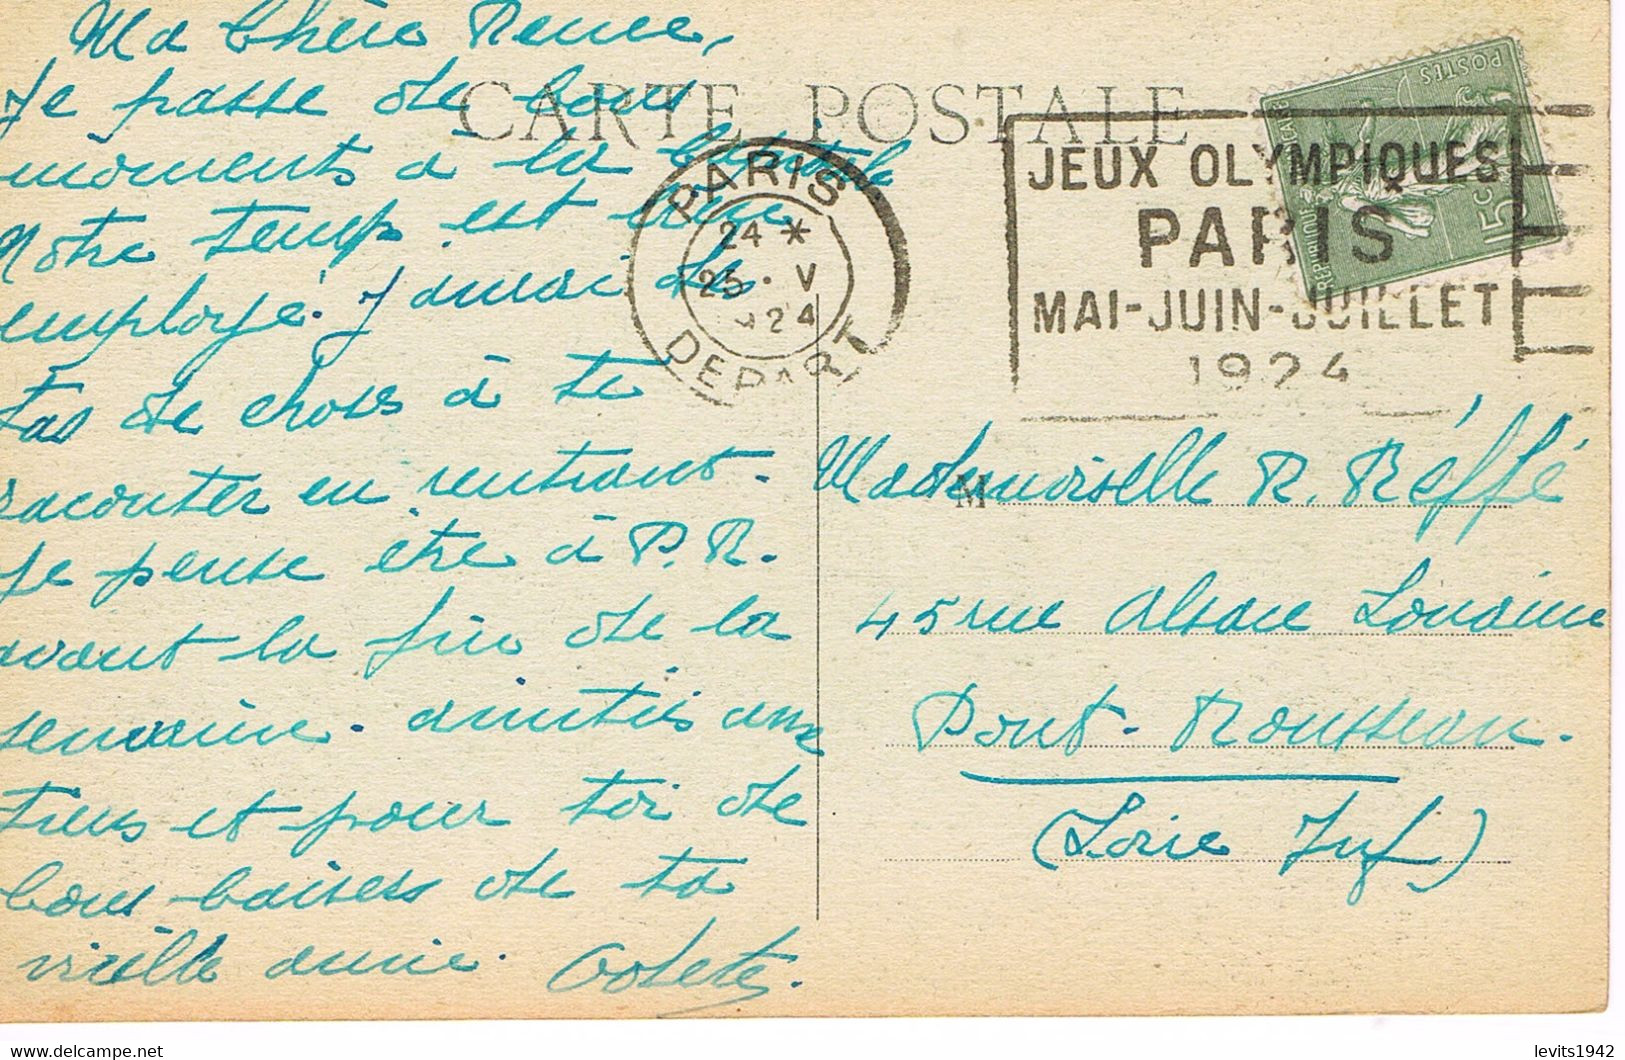 Ma Chère Renée,
Je passe de bons
moments à la Capitale
Notre temps est bien
employé. J'aurai des
tas de choses à te
raconter en rentrant.
Je pense être à P.R.
avant la fin de la
semaine. amitiés aux
tiens et pour toi de
bons baisers de ta
vieille amie.
CARTE POSTALE
PARIS
24 *
25 · V
924
DEPART
JEUX OLYMPIQUES
PARIS
MAI-JUIN-JUILLET
1924
POSTES
15c
M
Mademoiselle R. Réffé
45 rue Alsace Lorraine
Pont-Rousseau.
(Loire Inf)
levits1942